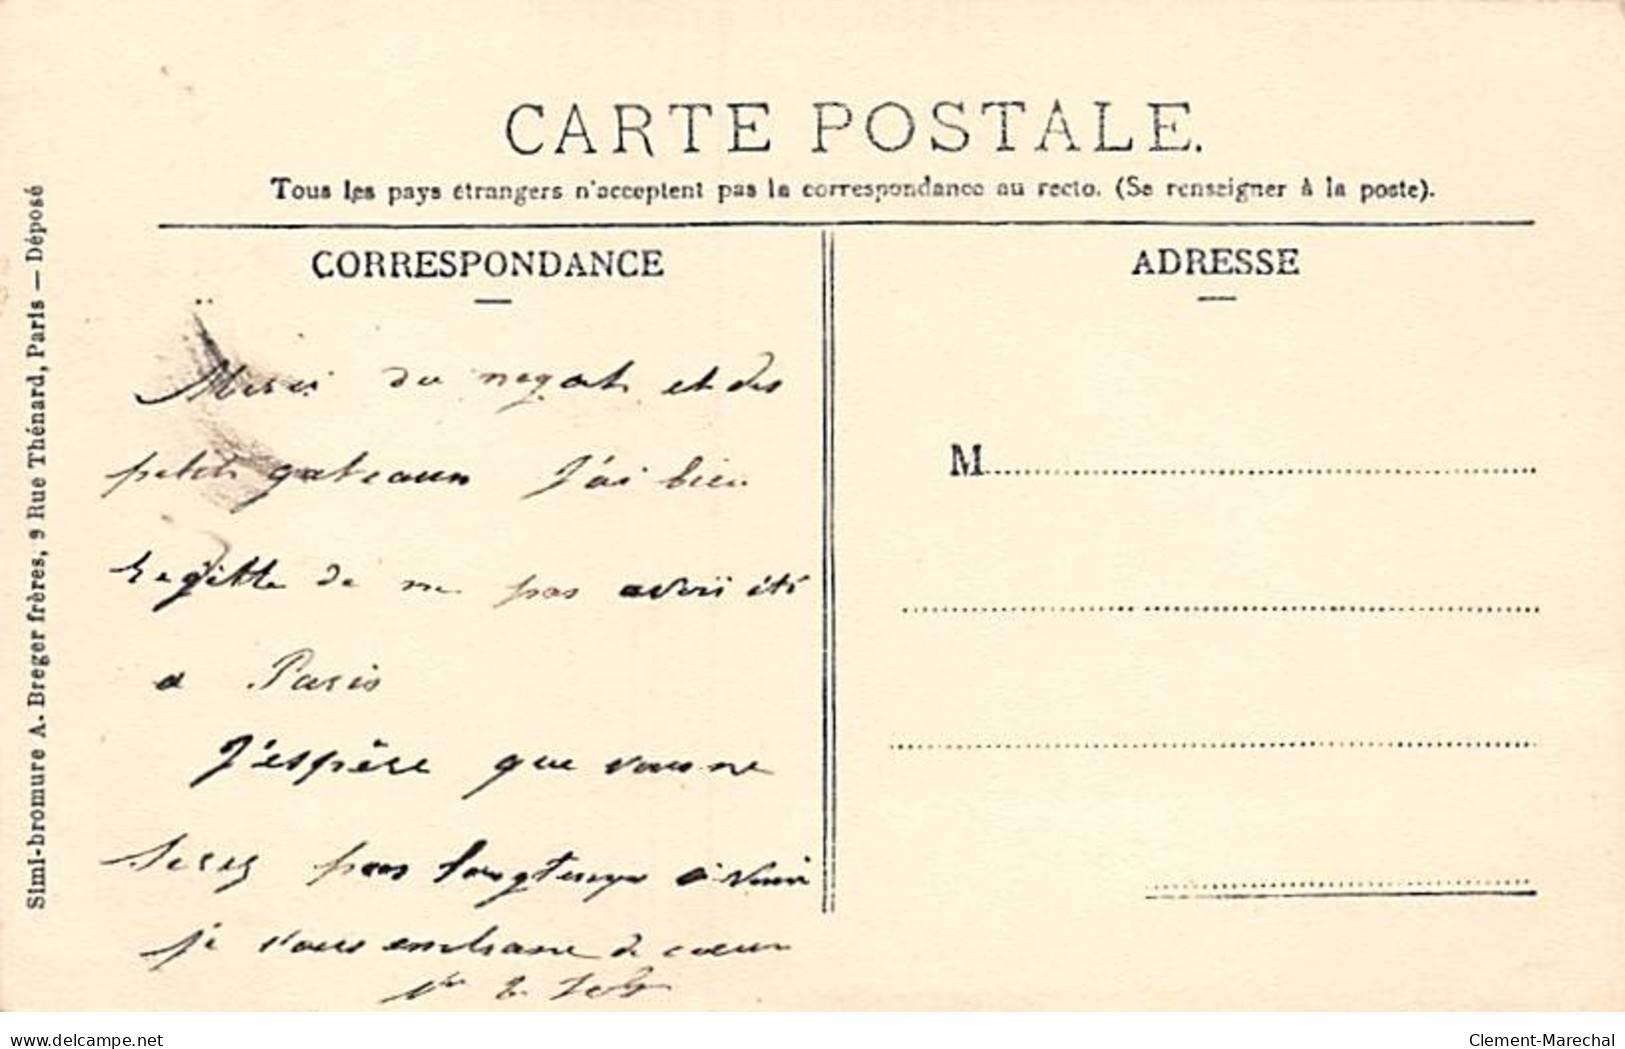 CARTE POSTALE.
Tous les pays étrangers n'acceptent pas la correspondance au recto. (Se renseigner à la poste).
CORRESPONDANCE
ADRESSE
Merci du et des
petits gateaux J'ai bien
de ne pas avoir été
a Paris
J'espère que vous ne
serez pas longtemps à venir
je vous embrasse de coeur
M
Simi-bromure A. Breger frères, 9 Rue Thénard, Paris — Déposé
delcampe.net
Clement-Marechal